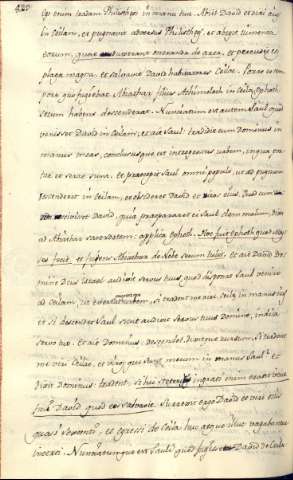 420
ego enim tradam Philisthęos in manu tua. Abiit David et viri eius
in Ceilam, et pugnavit adversus Philisthęos, et abegit iumenta
eorum, et percussit eos
plaga magna et salvavit David habitatores Ceilae. Porro eo tem
pore quo fugiebat Abiathar filius Achimelech in Ceila, Ephoth
secum habens descenderat. Nunciatum est autem Sauli quod
venisset David in Ceilam, et ait Saul tradidit eum Dominus in
manus meas, conclususque est introgressus urbem, in qua por
tae et serae sunt. et praecepit Saul omni populo, ut ad pugnam
descenderet in Ceilam, et obsideret David et viros eius. Quod cum
David, quia praepararet ei Saul clam malum, dixit
ad Abiathar sacerdotem: applica Ephoth.
et ait David Do
mine Deus Israel audivit servus tuus, quod disponat Saul venire
ad Ceilam, ut evertat urbem, si tradent me viri Ceilae in manus eius
et si descendet Saul sicut audivit servus tuus Domine, indica
servo tuo. et ait Dominus, descendet, dixitque David, si tradent
me viri Ceilae, et viros qui sunt mecum in manus Saul? et
dixit Dominus: tradent,
David Surrexit ergo David et viri eius
quasi sexcenti, et egressi de Ceila huc atque illuc vagabantur
incerti. Nunciatumque est Sauli quod fugisset David de Ceila